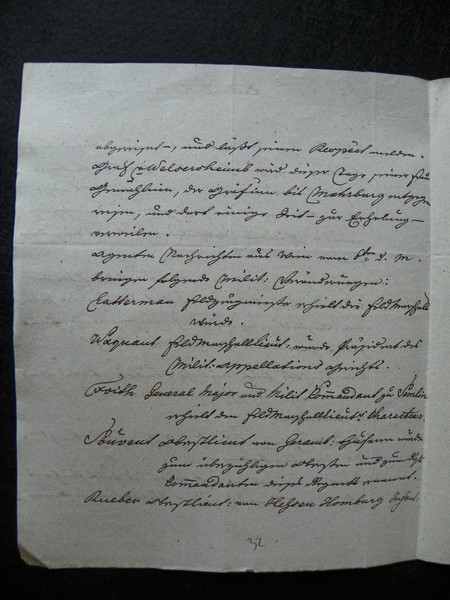 abgereiset –, und läßt seinen Respect melden.
Graf v Welsersheimb wird dieser Tage seiner Frau
Gemählinn, der Gräfinn bis Mahrburg entgegen
reisen, und dort einige Zeit – zur Erholung –
verweilen.
Agenten Nachrichten aus Wien vom 8ten d. M.
bringen folgende Milit: Veränderungen:
Latterman Feldzeugmeister erhielt die Feldmarschall
würde.
Waquant Feldmarschallieut: wurde Präsident des
Milit: Appellations Gerichts.
Foith General Major und Milit Commandant zu Semlin
erhielt den Feldmarschallieuts Charackter.
Souvent Obristlieut von Geramb: Husaren wurde
zum überzähligen Obersten und zum
Commandanten dieses Regmts ernannt.
Rueber Obristlieut: von Hessen Homburg Husar:
32